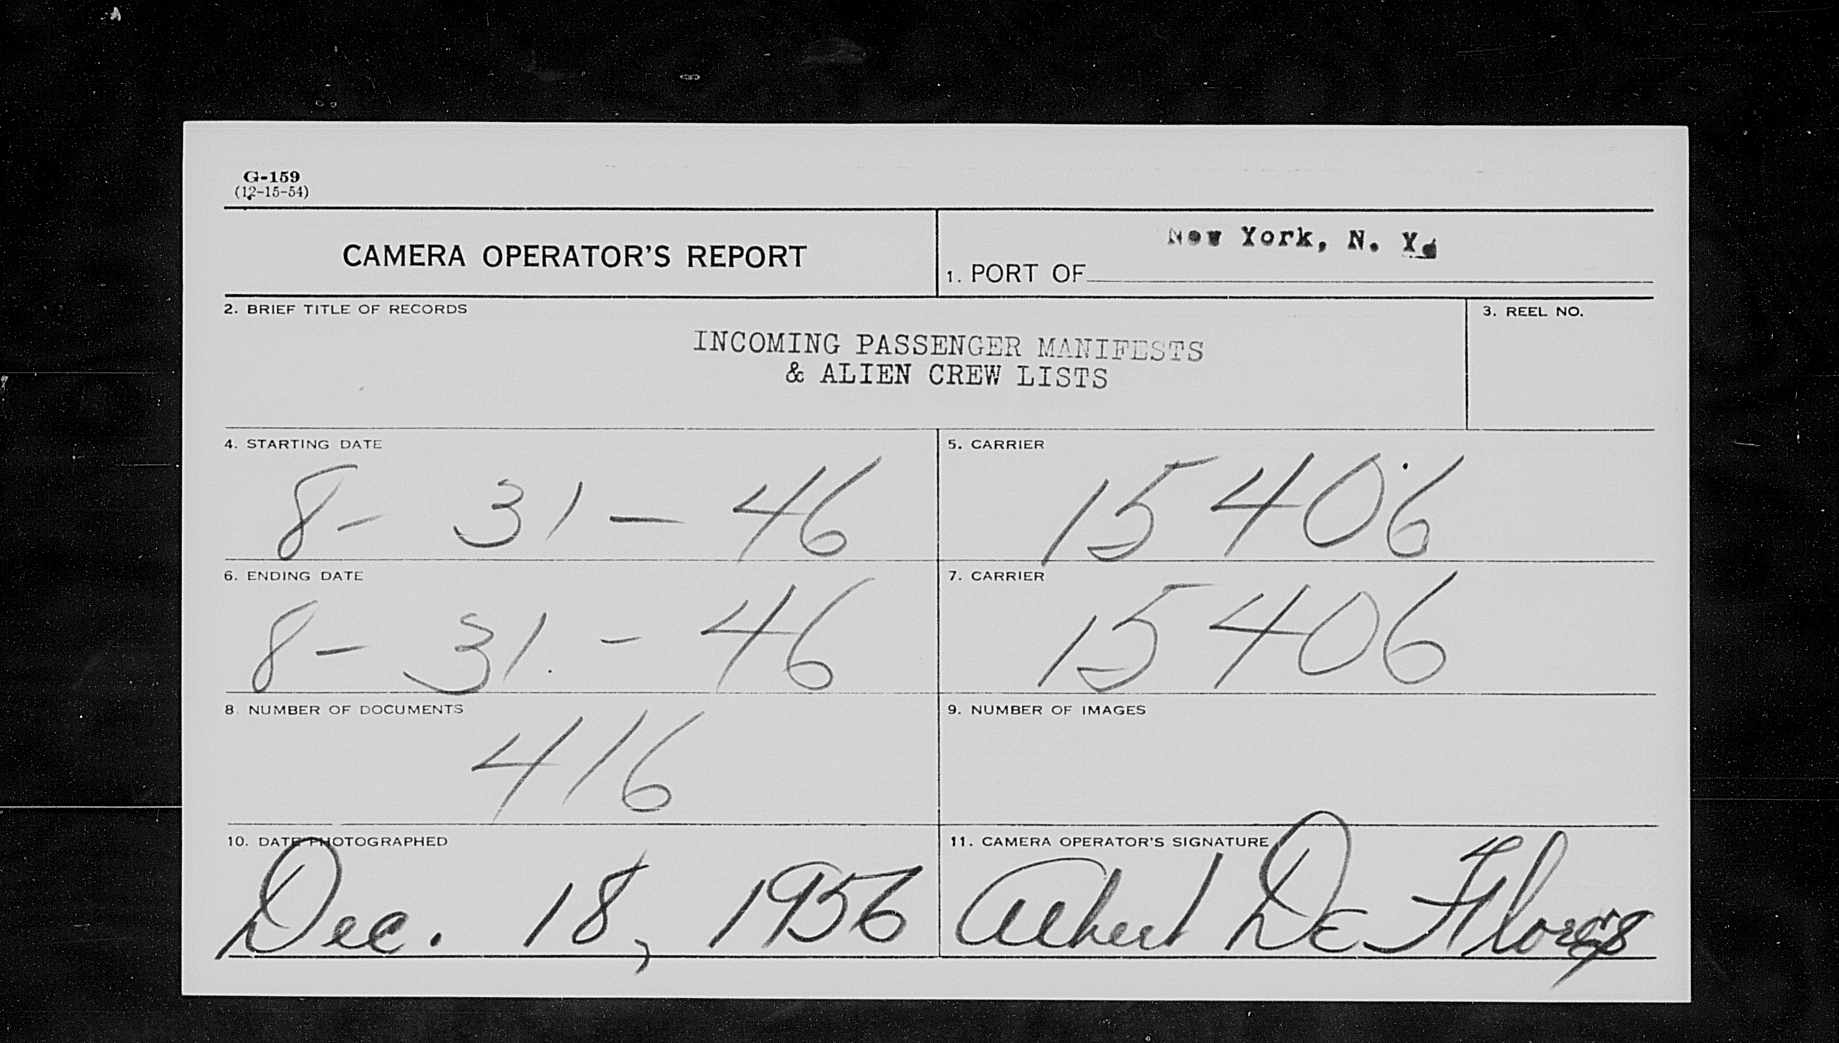 G-159
(12-15-54)
CAMERA OPERATOR'S REPORT
New York, N. Y.
1. PORT OF
2. BRIEF TITLE OF RECORDS
3. REEL NO.
INCOMING PASSENGER MANIFESTS
& ALIEN CREW LISTS
4. STARTING DATE
5. CARRIER
8- 31 - 46
15406
6. ENDING DATE
7. CARRIER
8- 31. - 46
15406
8 NUMBER OF DOCUMENTS
9. NUMBER OF IMAGES
416
10. DATE PHOTOGRAPHED
11. CAMERA OPERATOR'S SIGNATURE
Dec. 18, 1956
Albert De Flores